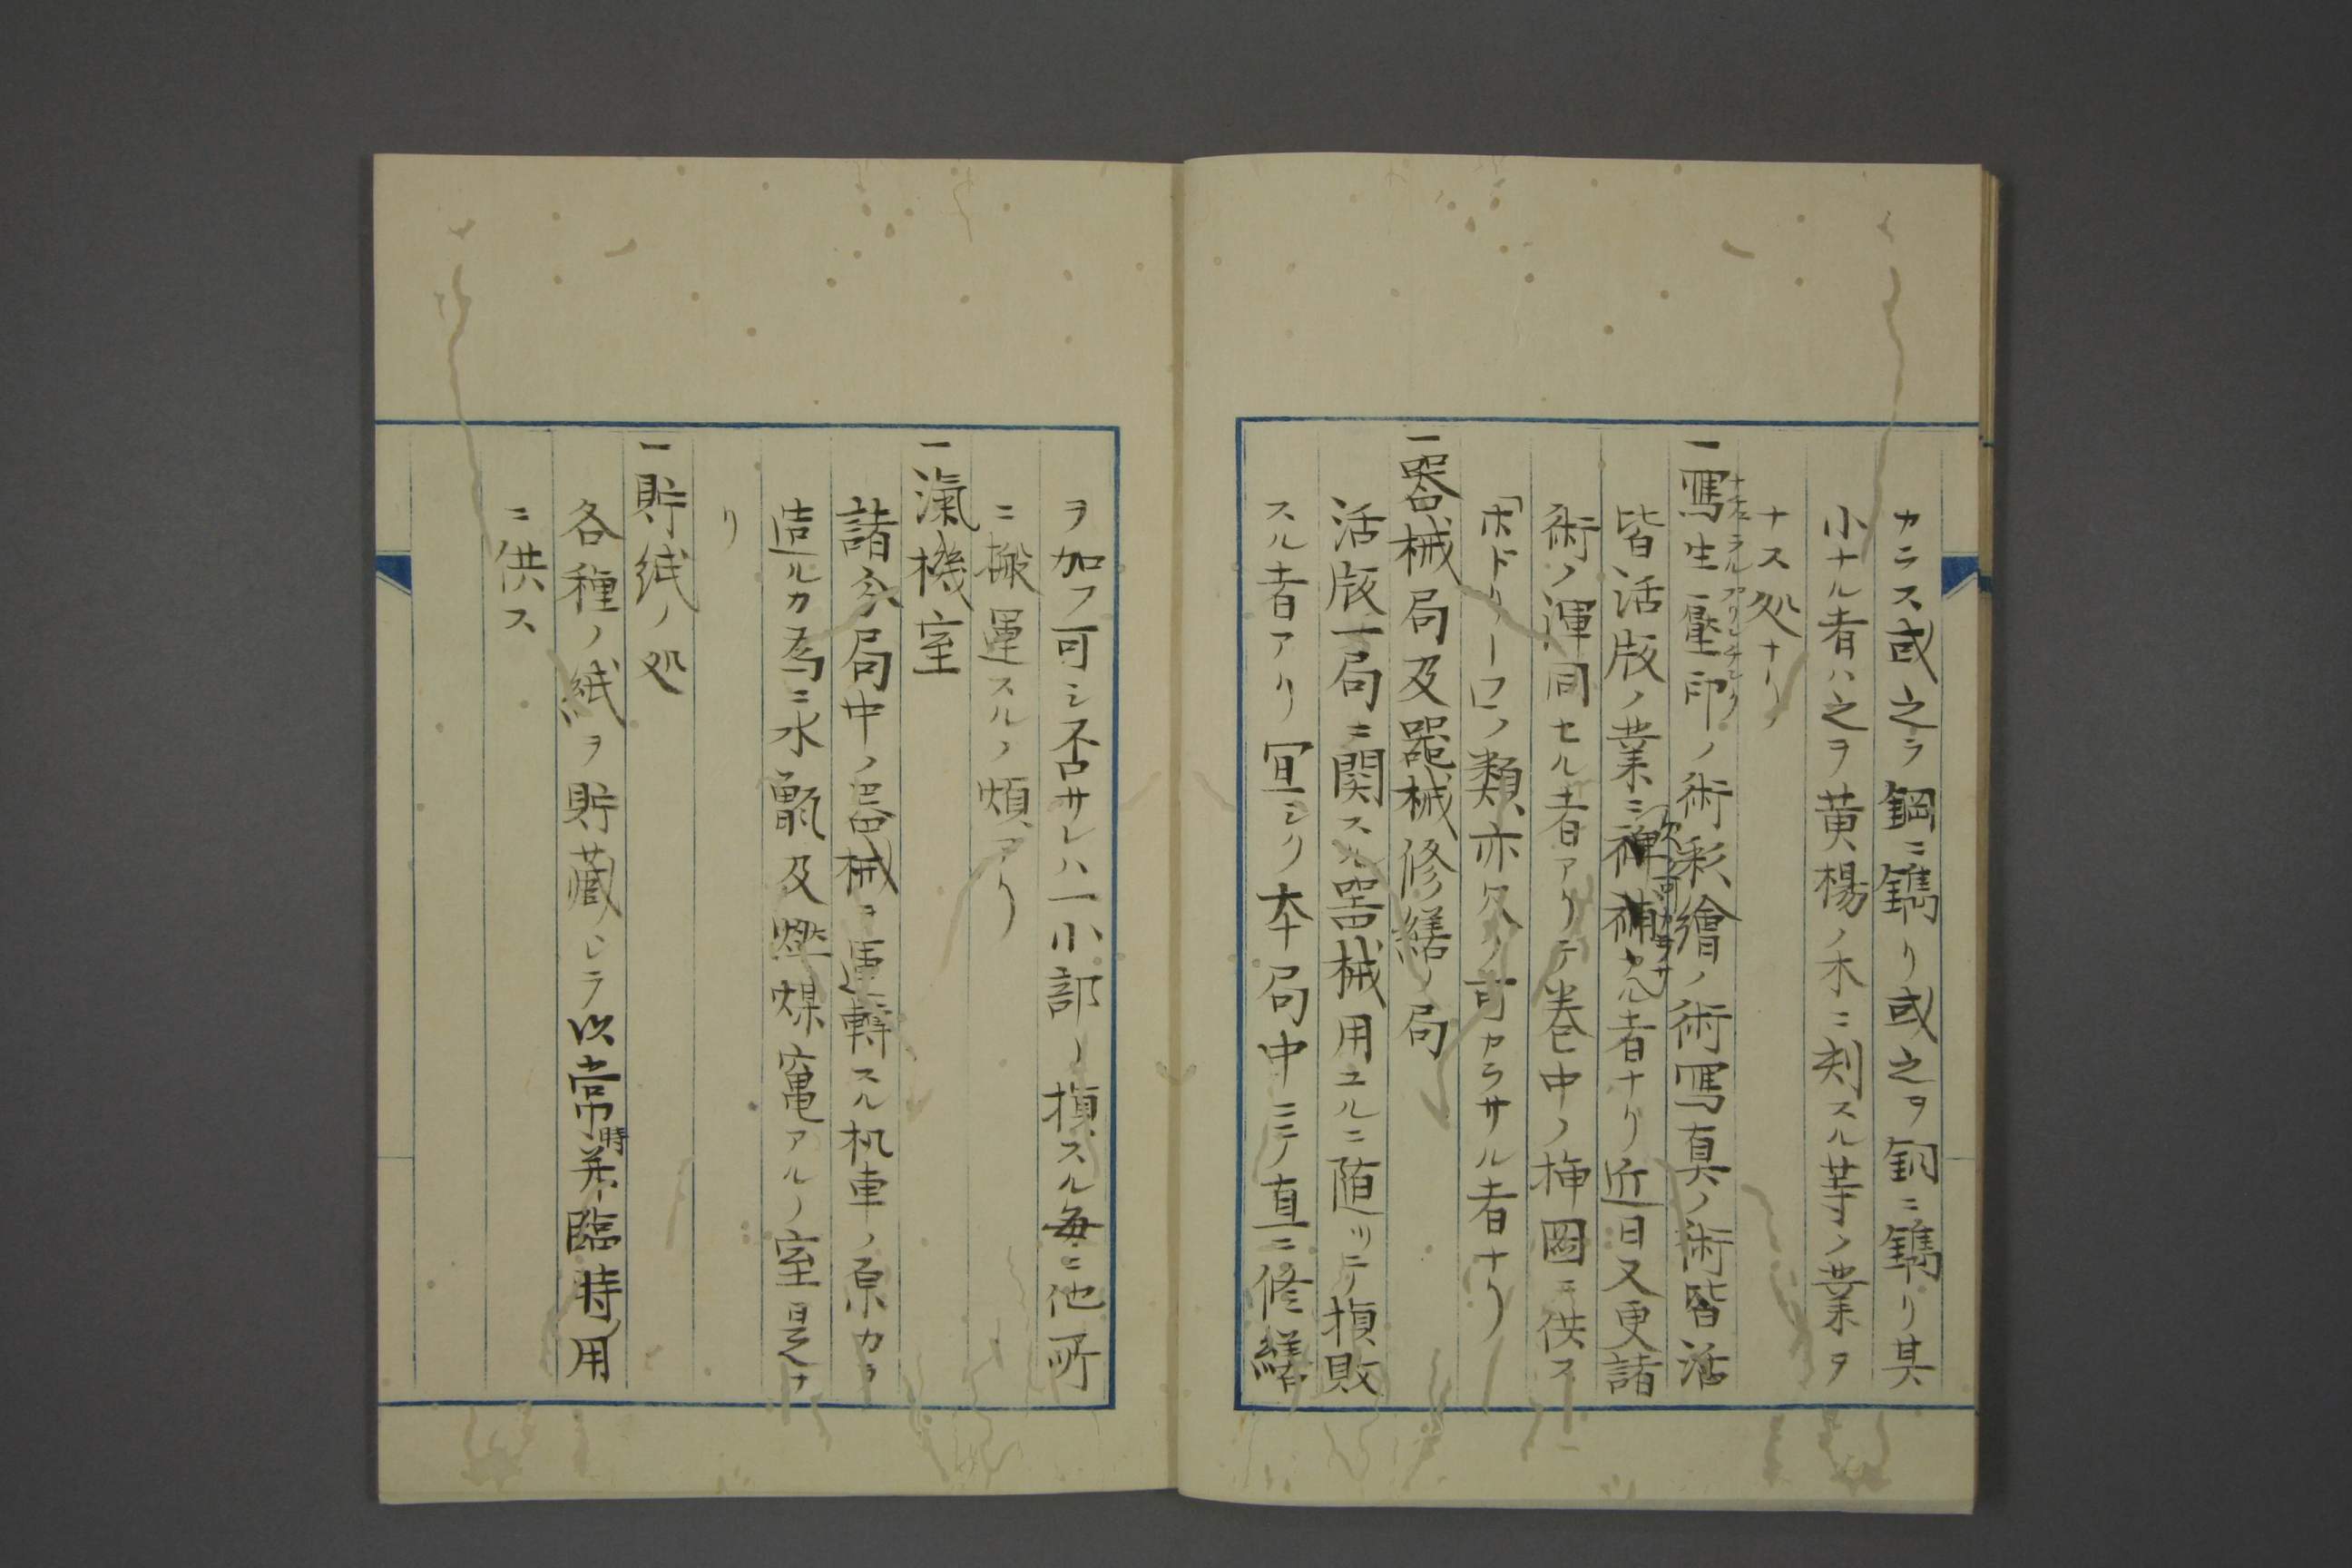 カニス或之ヲ鋼ニ鐫リ或之ヲ銅ニ鐫リ其
小ナル者ハ之ヲ黄楊ノ木ニ刻スル等ノ業ヲ
ナス処ナリ
一寫生壓印ノ術彩繪ノ術寫真ノ術皆活
皆活版ノ業ニ欠可カラサル者ナリ近日又更諸
術ノ渾同セル者アリテ巻中ノ挿圖ニ供ス
「ホドリーロノ類亦欠ク可カラサル者ナリ
一器械局及器械修繕ノ局
活版一局ニ関スル器械用ユルニ随ツテ損敗
スル者アリ冝シク本局中ニテ直ニ修繕
ヲ加フ可シ否サレハ一小部ノ損スル毎ニ他所
ニ搬運スルノ煩アリ
一滊機室
諸分局中ノ器械ヲ運轉スル机車ノ原カヲ
造ルカ為ニ水甑及燃煤竃アルノ室是ナ
リ
一貯紙ノ処
各種ノ紙ヲ貯藏シテ以常時并臨時用
ニ供ス